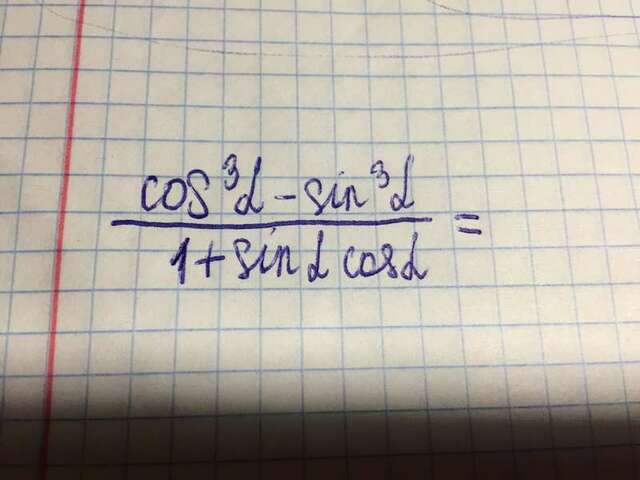 cos³α - sin³α
1 + sinα cosα =